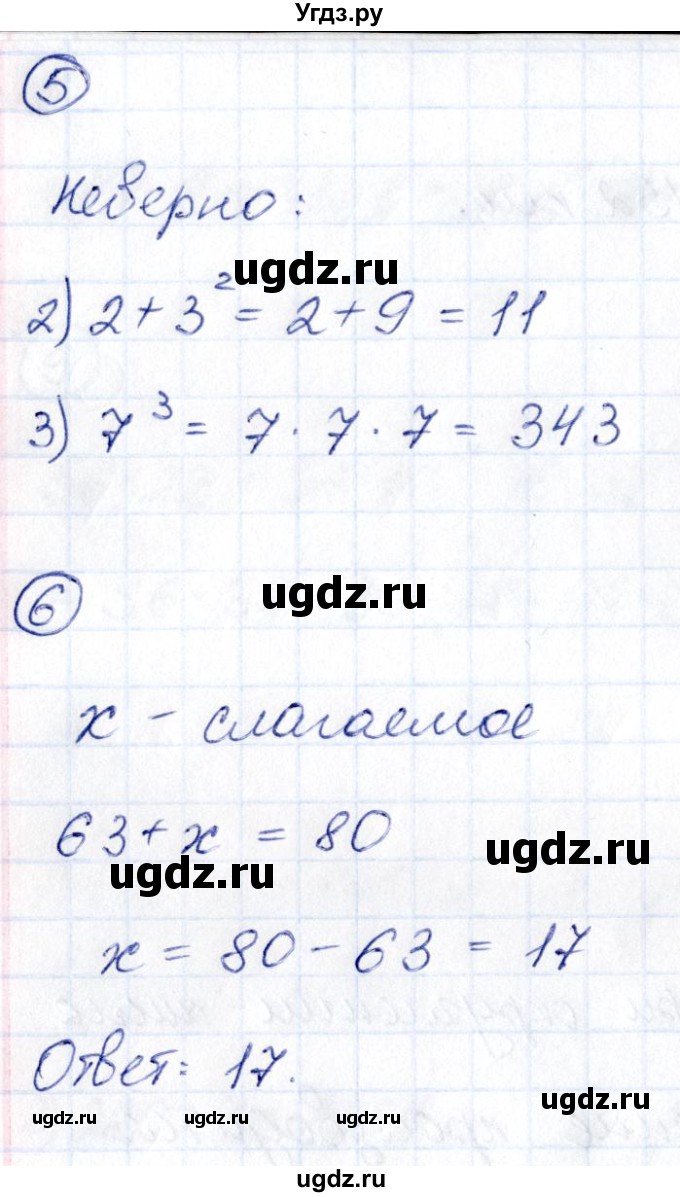 Угдз.ру
5
Неверно:
ugdz.ru
2) 2 + 3² = 2 + 9 = 11
3) 7³ = 7 · 7 · 7 = 343
ugdz.ru
6
х - слагаемое
63 + х = 80
ugdz.ru
ugdz.ru
х = 80 - 63 = 17
Ответ: 17.
ugdz.ru
ugdz.ru ugdz.ru ugdz.ru
ugdz.ru